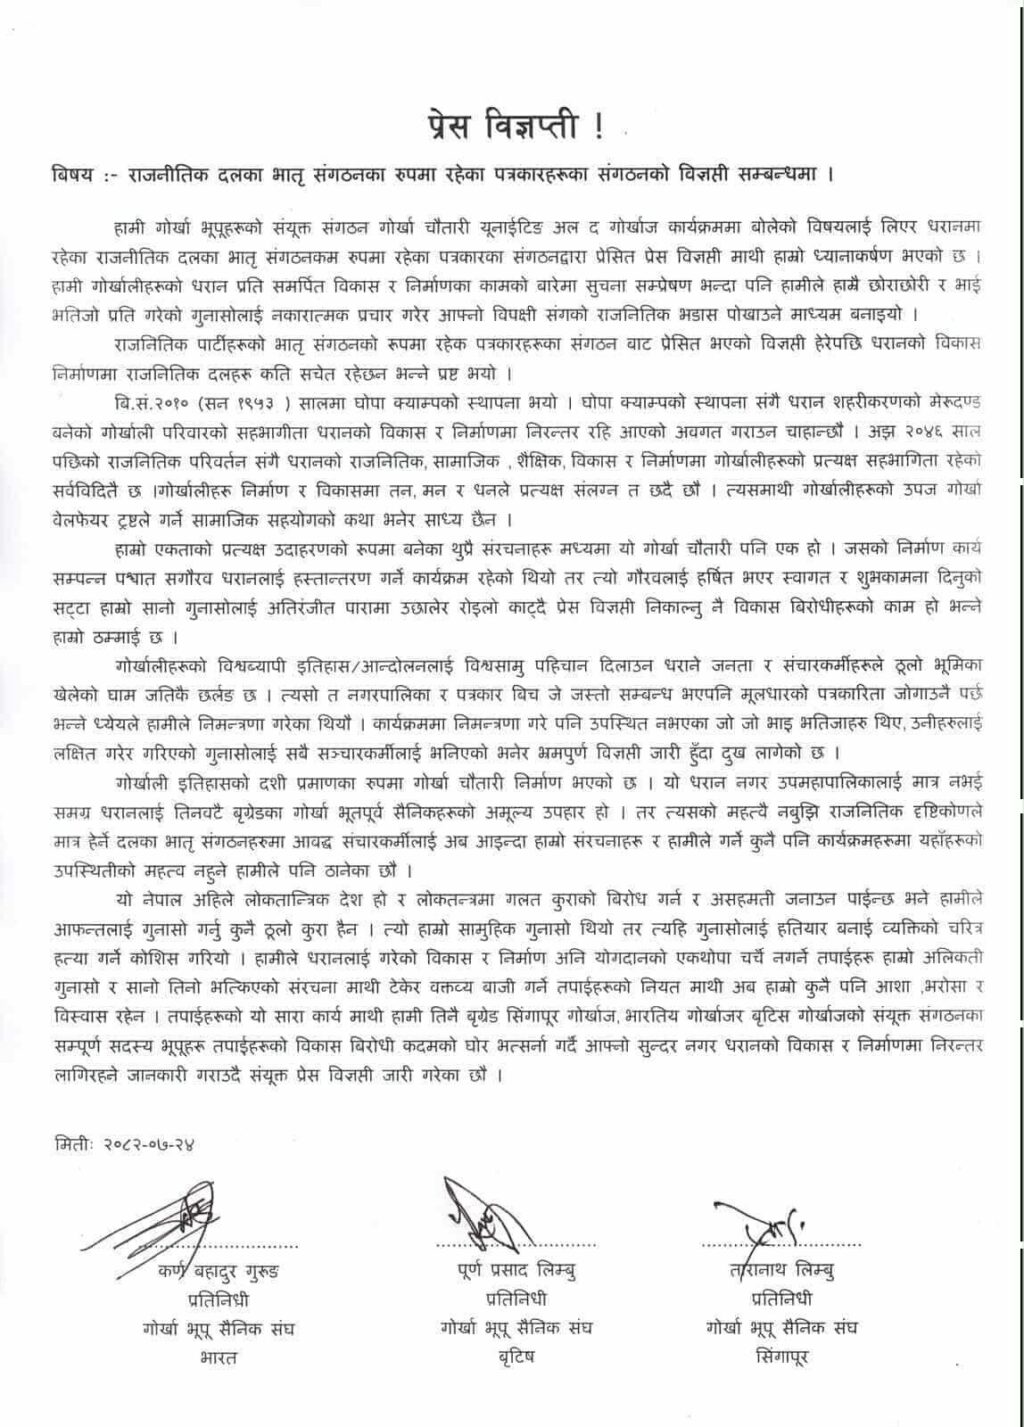 प्रेस विज्ञप्ती !
बिषय :- राजनीतिक दलका भातृ संगठनका रुपमा रहेका पत्रकारहरूका संगठनको विज्ञप्ती सम्बन्धमा ।
हामी गोर्खा भूपूहरूको संयूक्त संगठन गोर्खा चौतारी यूनाईटिङ अल द गोर्खाज कार्यक्रममा बोलेको विषयलाई लिएर धरानमा
रहेका राजनीतिक दलका भातृ संगठनकम रुपमा रहेका पत्रकारका संगठनद्वारा प्रेसित प्रेस विज्ञप्ती माथी हाम्रो ध्यानाकर्षण भएको छ ।
हामी गोर्खालीहरूको धरान प्रति समर्पित विकास र निर्माणका कामको बारेमा सुचना सम्प्रेषण भन्दा पनि हामीले हाम्रै छोराछोरी र भाई
भतिजो प्रति गरेको गुनासोलाई नकारात्मक प्रचार गरेर आफ्नो विपक्षी संगको राजनितिक भडास पोखाउने माध्यम बनाइयो ।
राजनितिक पार्टीहरूको भातृ संगठनको रूपमा रहेक पत्रकारहरूका संगठन बाट प्रेसित भएको विज्ञप्ती हेरेपछि धरानको विकास
निर्माणमा राजनितिक दलहरू कति सचेत रहेछन भन्ने प्रष्ट भयो ।
बि.सं.२०१० (सन १९५३ ) सालमा घोपा क्याम्पको स्थापना भयो । घोपा क्याम्पको स्थापना संगै धरान शहरीकरणको मेरूदण्ड
बनेको गोर्खाली परिवारको सहभागीता धरानको विकास र निर्माणमा निरन्तर रहि आएको अवगत गराउन चाहान्छौ । अझ २०४६ साल
पछिको राजनितिक परिवर्तन संगै धरानको राजनितिक, सामाजिक , शैक्षिक, विकास र निर्माणमा गोर्खालीहरूको प्रत्यक्ष सहभागिता रहेको
सर्वविदितै छ ।गोर्खालीहरू निर्माण र विकासमा तन, मन र धनले प्रत्यक्ष संलग्न त छदै छौ । त्यसमाथी गोर्खालीहरूको उपज गोर्खा
वेलफेयर ट्रष्टले गर्ने सामाजिक सहयोगको कथा भनेर साध्य छैन ।
हाम्रो एकताको प्रत्यक्ष उदाहरणको रूपमा बनेका थुप्रै संरचनाहरू मध्यमा यो गोर्खा चौतारी पनि एक हो । जसको निर्माण कार्य
सम्पन्न पश्चात सगौरव धरानलाई हस्तान्तरण गर्ने कार्यक्रम रहेको थियो तर त्यो गौरवलाई हर्षित भएर स्वागत र शुभकामना दिनुको
सट्टा हाम्रो सानो गुनासोलाई अतिरंजीत पारामा उछालेर रोइलो काट्दै प्रेस विज्ञप्ती निकाल्नु नै विकास बिरोधीहरूको काम हो भन्ने
हाम्रो ठम्माई छ ।
गोर्खालीहरूको विश्वव्यापी इतिहास/आन्दोलनलाई विश्वसामु पहिचान दिलाउन धराने जनता र संचारकर्मीहरूले ठूलो भूमिका
खेलेको घाम जतिकै छर्लङ छ । त्यसो त नगरपालिका र पत्रकार बिच जे जस्तो सम्बन्ध भएपनि मूलधारको पत्रकारिता जोगाउनै पर्छ
भन्ने ध्येयले हामीले निमन्त्रणा गरेका थियौ । कार्यक्रममा निमन्त्रणा गरे पनि उपस्थित नभएका जो जो भाइ भतिजाहरु थिए, उनीहरुलाई
लक्षित गरेर गरिएको गुनासोलाई सबै सञ्चारकर्मीलाई भनिएको भनेर भ्रमपुर्ण विज्ञप्ती जारी हुँदा दुख लागेको छ ।
गोर्खाली इतिहासको दशी प्रमाणका रुपमा गोर्खा चौतारी निर्माण भएको छ । यो धरान नगर उपमहापालिकालाई मात्र नभई
समग्र धरानलाई तिनवटै बृग्रेडका गोर्खा भूतपूर्व सैनिकहरूको अमूल्य उपहार हो । तर त्यसको महत्वै नबुझि राजनितिक दृष्टिकोणले
मात्र हेर्ने दलका भातृ संगठनहरुमा आवद्ध संचारकर्मीलाई अब आइन्दा हाम्रो संरचनाहरू र हामीले गर्ने कुनै पनि कार्यक्रमहरूमा यहाँहरूको
उपस्थितीको महत्व नहुने हामीले पनि ठानेका छौ ।
यो नेपाल अहिले लोकतान्त्रिक देश हो र लोकतन्त्रमा गलत कुराको बिरोध गर्न र असहमती जनाउन पाईन्छ भने हामीले
आफन्तलाई गुनासो गर्नु कुनै ठूलो कुरा हैन । त्यो हाम्रो सामुहिक गुनासो थियो तर त्यहि गुनासोलाई हतियार बनाई व्यक्तिको चरित्र
हत्या गर्ने कोशिस गरियो । हामीले धरानलाई गरेको विकास र निर्माण अनि योगदानको एकथोपा चर्चै नगर्ने तपाईहरू हाम्रो अलिकती
गुनासो र सानो तिनो भत्किएको संरचना माथी टेकेर वक्तव्य बाजी गर्ने तपाईहरूको नियत माथी अब हाम्रो कुनै पनि आशा ,भरोसा र
विस्वास रहेन । तपाईहरूको यो सारा कार्य माथी हामी तिनै बृग्रेड सिंगापूर गोर्खाज, भारतिय गोर्खाजर बृटिस गोर्खाजको संयूक्त संगठनका
सम्पूर्ण सदस्य भूपूहरू तपाईहरूको विकास बिरोधी कदमको घोर भर्त्सना गर्दै आफ्नो सुन्दर नगर धरानको विकास र निर्माणमा निरन्तर
लागिरहने जानकारी गराउदै संयूक्त प्रेस विज्ञप्ती जारी गरेका छौ ।
मितीः २०८२-०७-२४
कर्ण बहादुर गुरुङ
पूर्ण प्रसाद लिम्बु
तारानाथ लिम्बु
प्रतिनिधी
प्रतिनिधी
प्रतिनिधी
गोर्खा भूपू सैनिक संघ
गोर्खा भूपू सैनिक संघ
गोर्खा भूपू सैनिक संघ
भारत
बृटिष
सिंगापूर